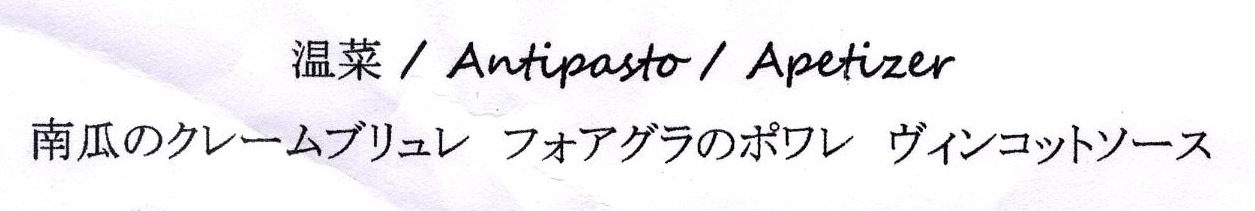 温菜 / Antipasto / Apetizer
南瓜のクレームブリュレ フォアグラのポワレ ヴィンコットソース